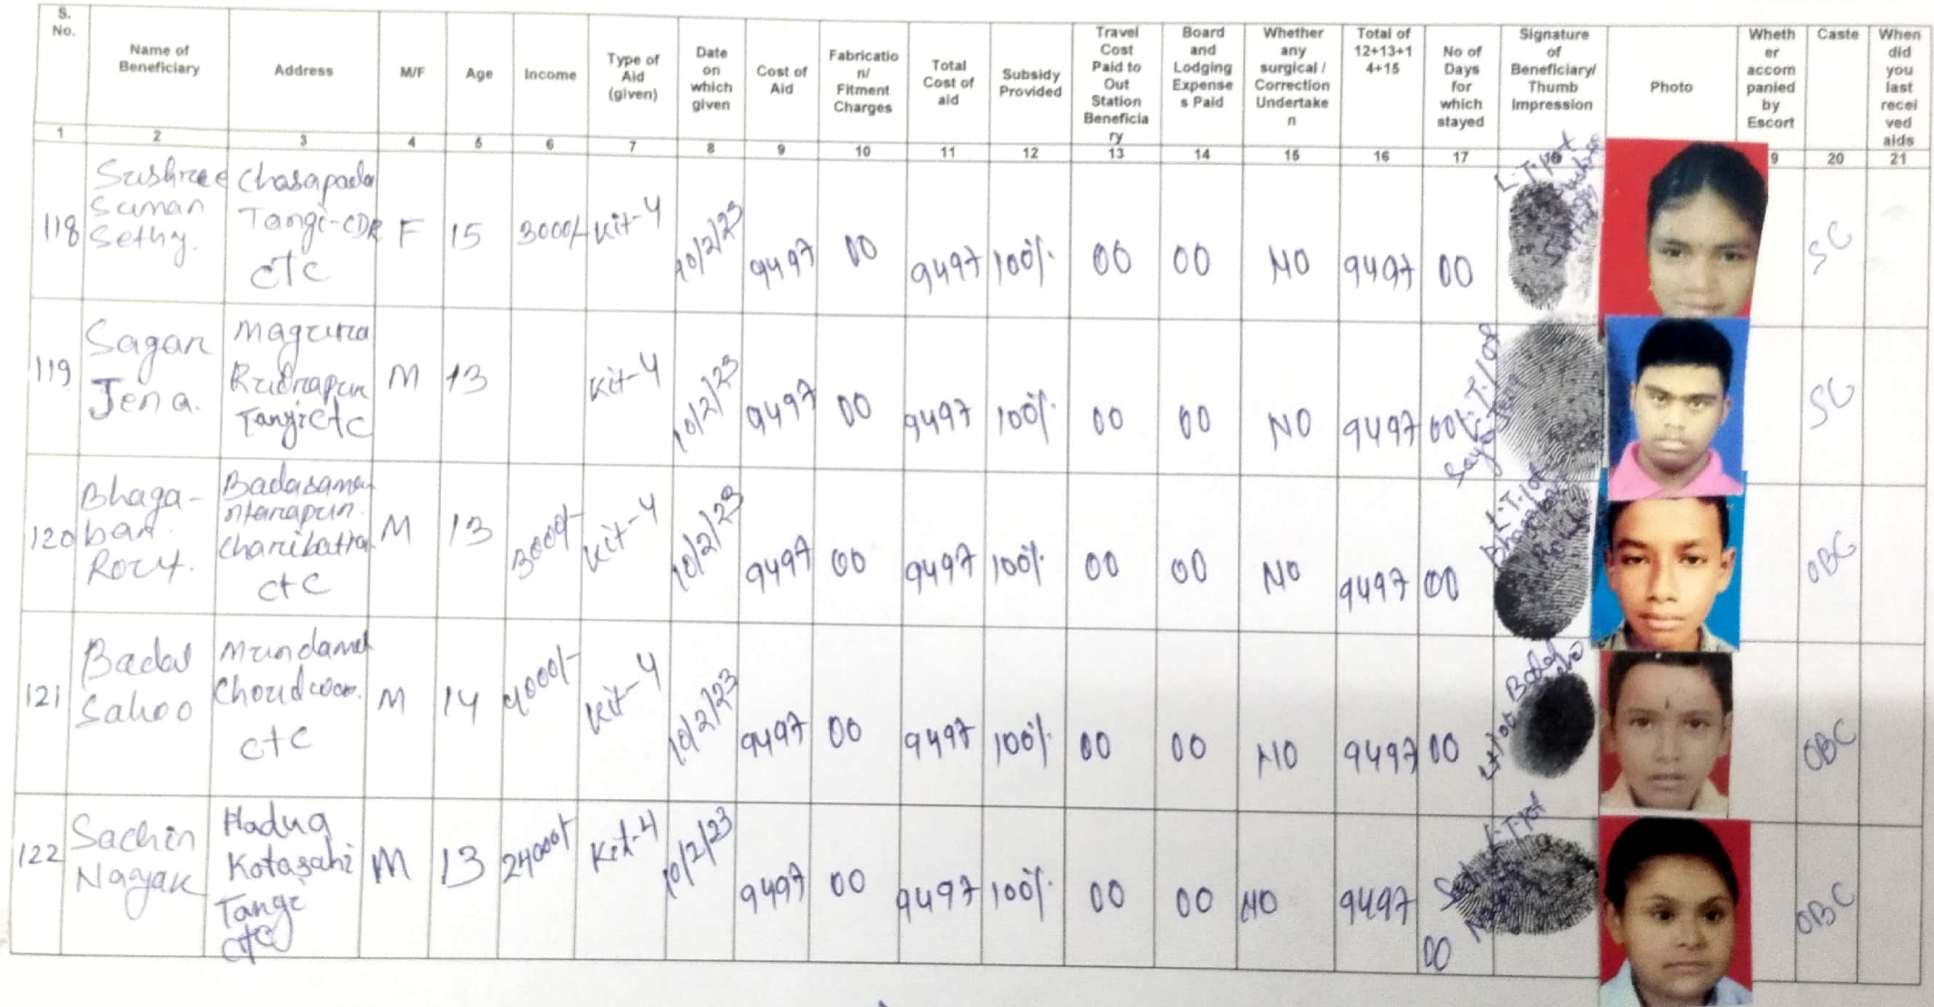 S. No. | Name of Beneficiary | Address | M/F | Age | Income | Type of Aid (given) | Date on which given | Cost of Aid | Fabricatio n/ Fitment Charges | Total Cost of aid | Subsidy Provided | Travel Cost Paid to Out Station Beneficia ry | Board and Lodging Expense s Paid | Whether any surgical / Correction Undertake n | Total of 12+13+1 4+15 | No of Days for which stayed | Signature of Beneficiary/ Thumb Impression | Photo | Wheth er accom panied by Escort | Caste | When did you last recei ved aids
1 | 2 | 3 | 4 | 5 | 6 | 7 | 8 | 9 | 10 | 11 | 12 | 13 | 14 | 15 | 16 | 17 | 18 | 9 | 20 | 21
118 | Sushree Suman Sethy. | Chasapada Tangi-CDR CTC | F | 15 | 3000/- | Kit-4 | 10/2/23 | 9497 | 00 | 9497 | 100% | 00 | 00 | NO | 9497 | 00 | L.T.I of | SC
119 | Sagar Jena. | Rudrapur Tangi ctc | M | 13 | Kit-4 | 10/2/23 | 9497 | 00 | 9497 | 100% | 00 | 00 | NO | 9497 | 00 | L.T.I of Sagar Jena | SC
120 | Bhaga- ban Rout. | ctc | M | 13 | 3000/- | Kit-4 | 10/2/23 | 9497 | 00 | 9497 | 100% | 00 | 00 | NO | 9497 | 00 | L.T.I of Bhagaban Rout | OBC
121 | Badal Sahoo | Choudwar. ctc | M | 14 | Kit-4 | 10/2/23 | 9497 | 00 | 9497 | 100% | 00 | 00 | NO | 9497 | 00 | LTI of Badal Sahoo | OBC
122 | Sachin Nayak | Kotasahi Tangi ctc | M | 13 | 24000/- | Kit-4 | 10/2/23 | 9497 | 00 | 9497 | 100% | 00 | 00 | NO | 9497 | 00 | L.T.I of Sachin Nayak | OBC